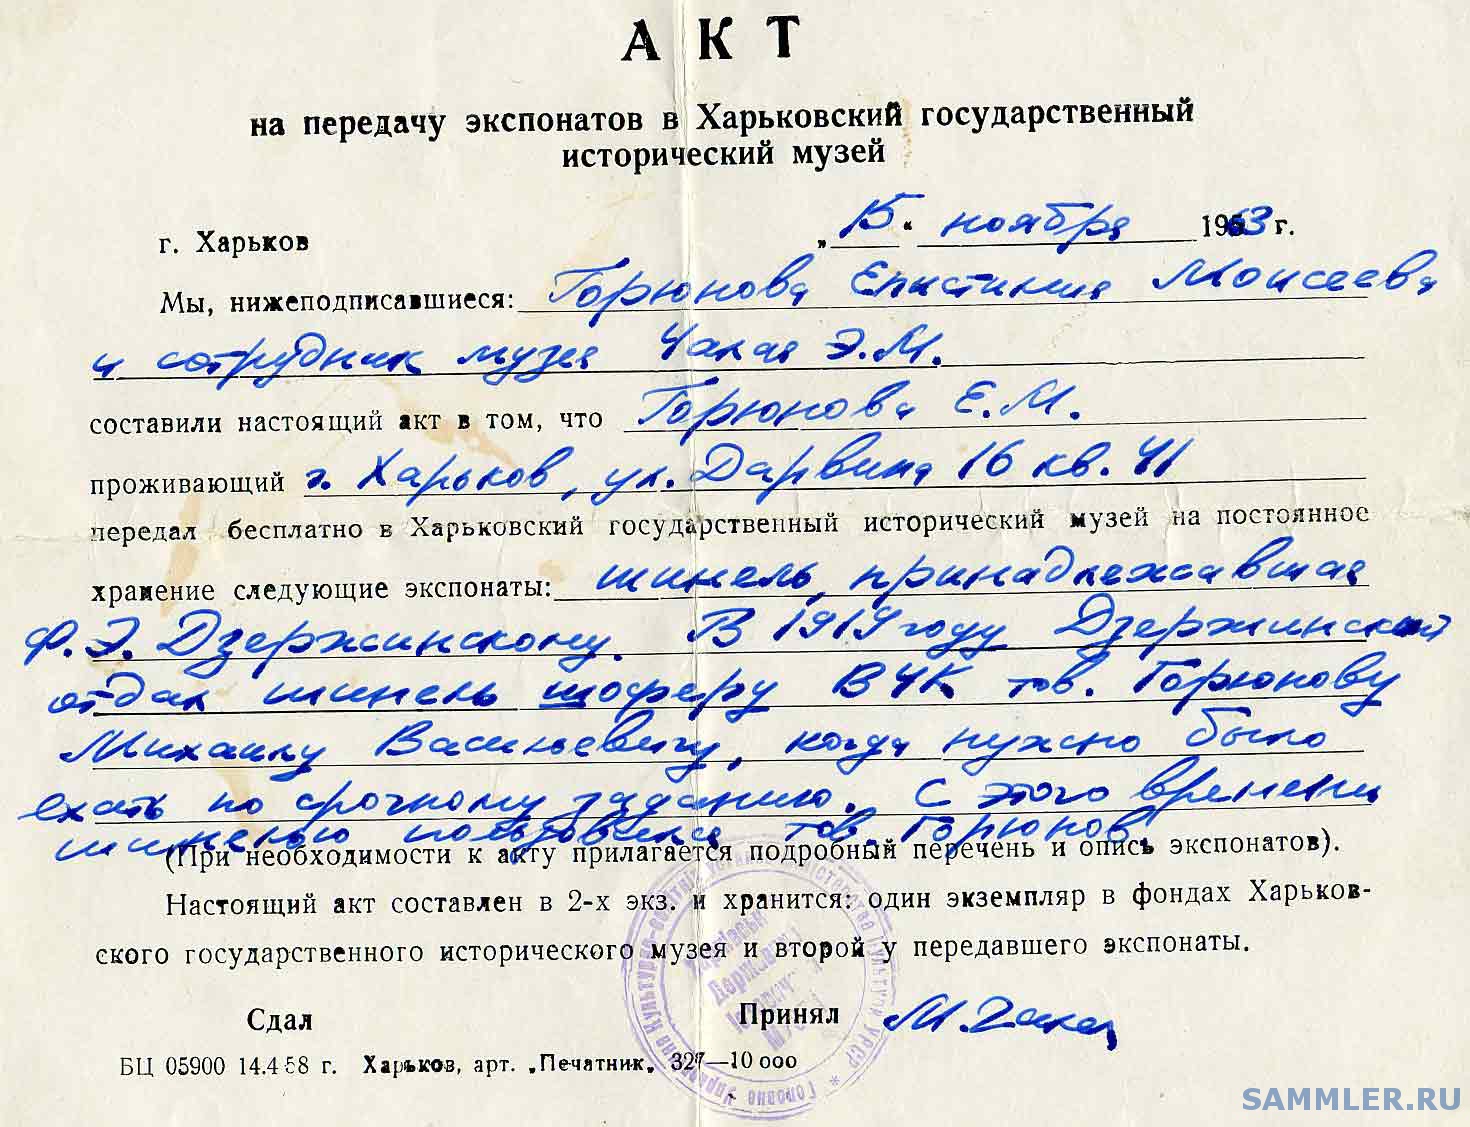 АКТ
на передачу экспонатов в Харьковский государственный
исторический музей
г. Харьков „15“ ноября 1963 г.
Мы, нижеподписавшиеся: Горюнова Епистимия Моисеевна
и сотрудник музея Чакая Э.М.
составили настоящий акт в том, что Горюнова Е.М.
проживающий г. Харьков, ул. Дарвина 16 кв. 41
передал бесплатно в Харьковский государственный исторический музей на постоянное
хранение следующие экспонаты: шинель, принадлежавшая
Ф.Э. Дзержинскому. В 1919 году Дзержинский
отдал шинель шоферу ВЧК тов. Горюнову
Михаилу Васильевичу, когда нужно было
ехать по срочному заданию. С этого времени
шинелью пользовался тов Горюнов
(При необходимости к акту прилагается подробный перечень и опись экспонатов).
Настоящий акт составлен в 2-х экз. и хранится: один экземпляр в фондах Харьков-
ского государственного исторического музея и второй у передавшего экспонаты.
Сдал Принял
БЦ 05900 14.4 58 г. Харьков, арт. „Печатник„ 327—10 000
SAMMLER.RU